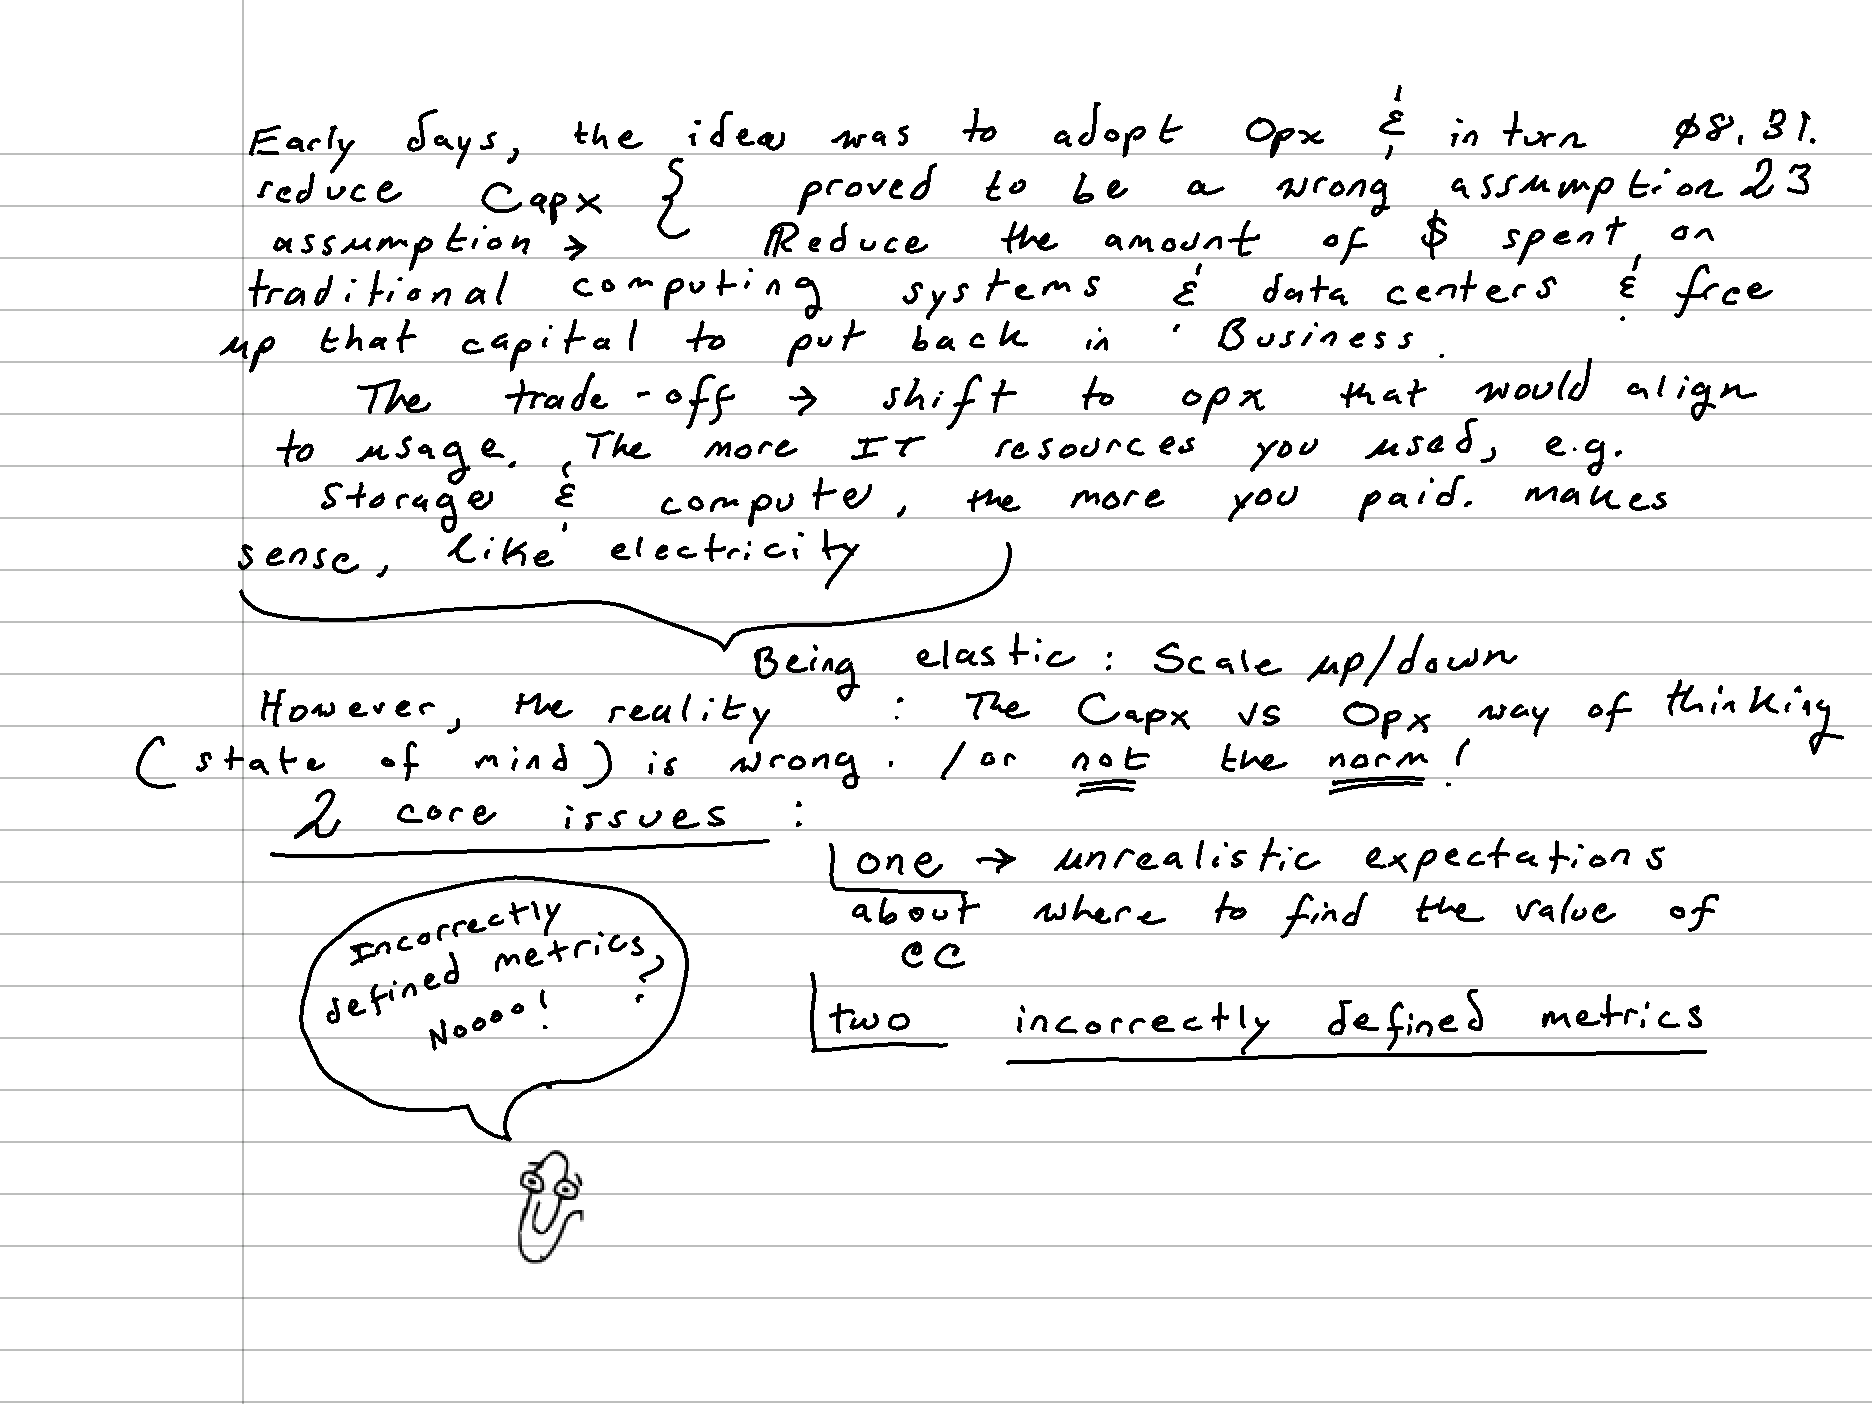 Early days, the idea was to adopt Opx & in turn 08.31.
reduce Capx { proved to be a wrong assumption 23
assumption → Reduce the amount of $ spent on
traditional computing systems & data centers & free
up that capital to put back in Business.
The trade-off → shift to opx that would align
to usage. The more IT resources you used, e.g.
Storage & compute, the more you paid. makes
sense, like electricity
Being elastic: Scale up/down
However, the reality : The Capx vs Opx way of thinking
(state of mind) is wrong. / or not the norm!
2 core issues :
one → unrealistic expectations
about where to find the value of
CC
two incorrectly defined metrics
Incorrectly
defined metrics,
Noooo! ?